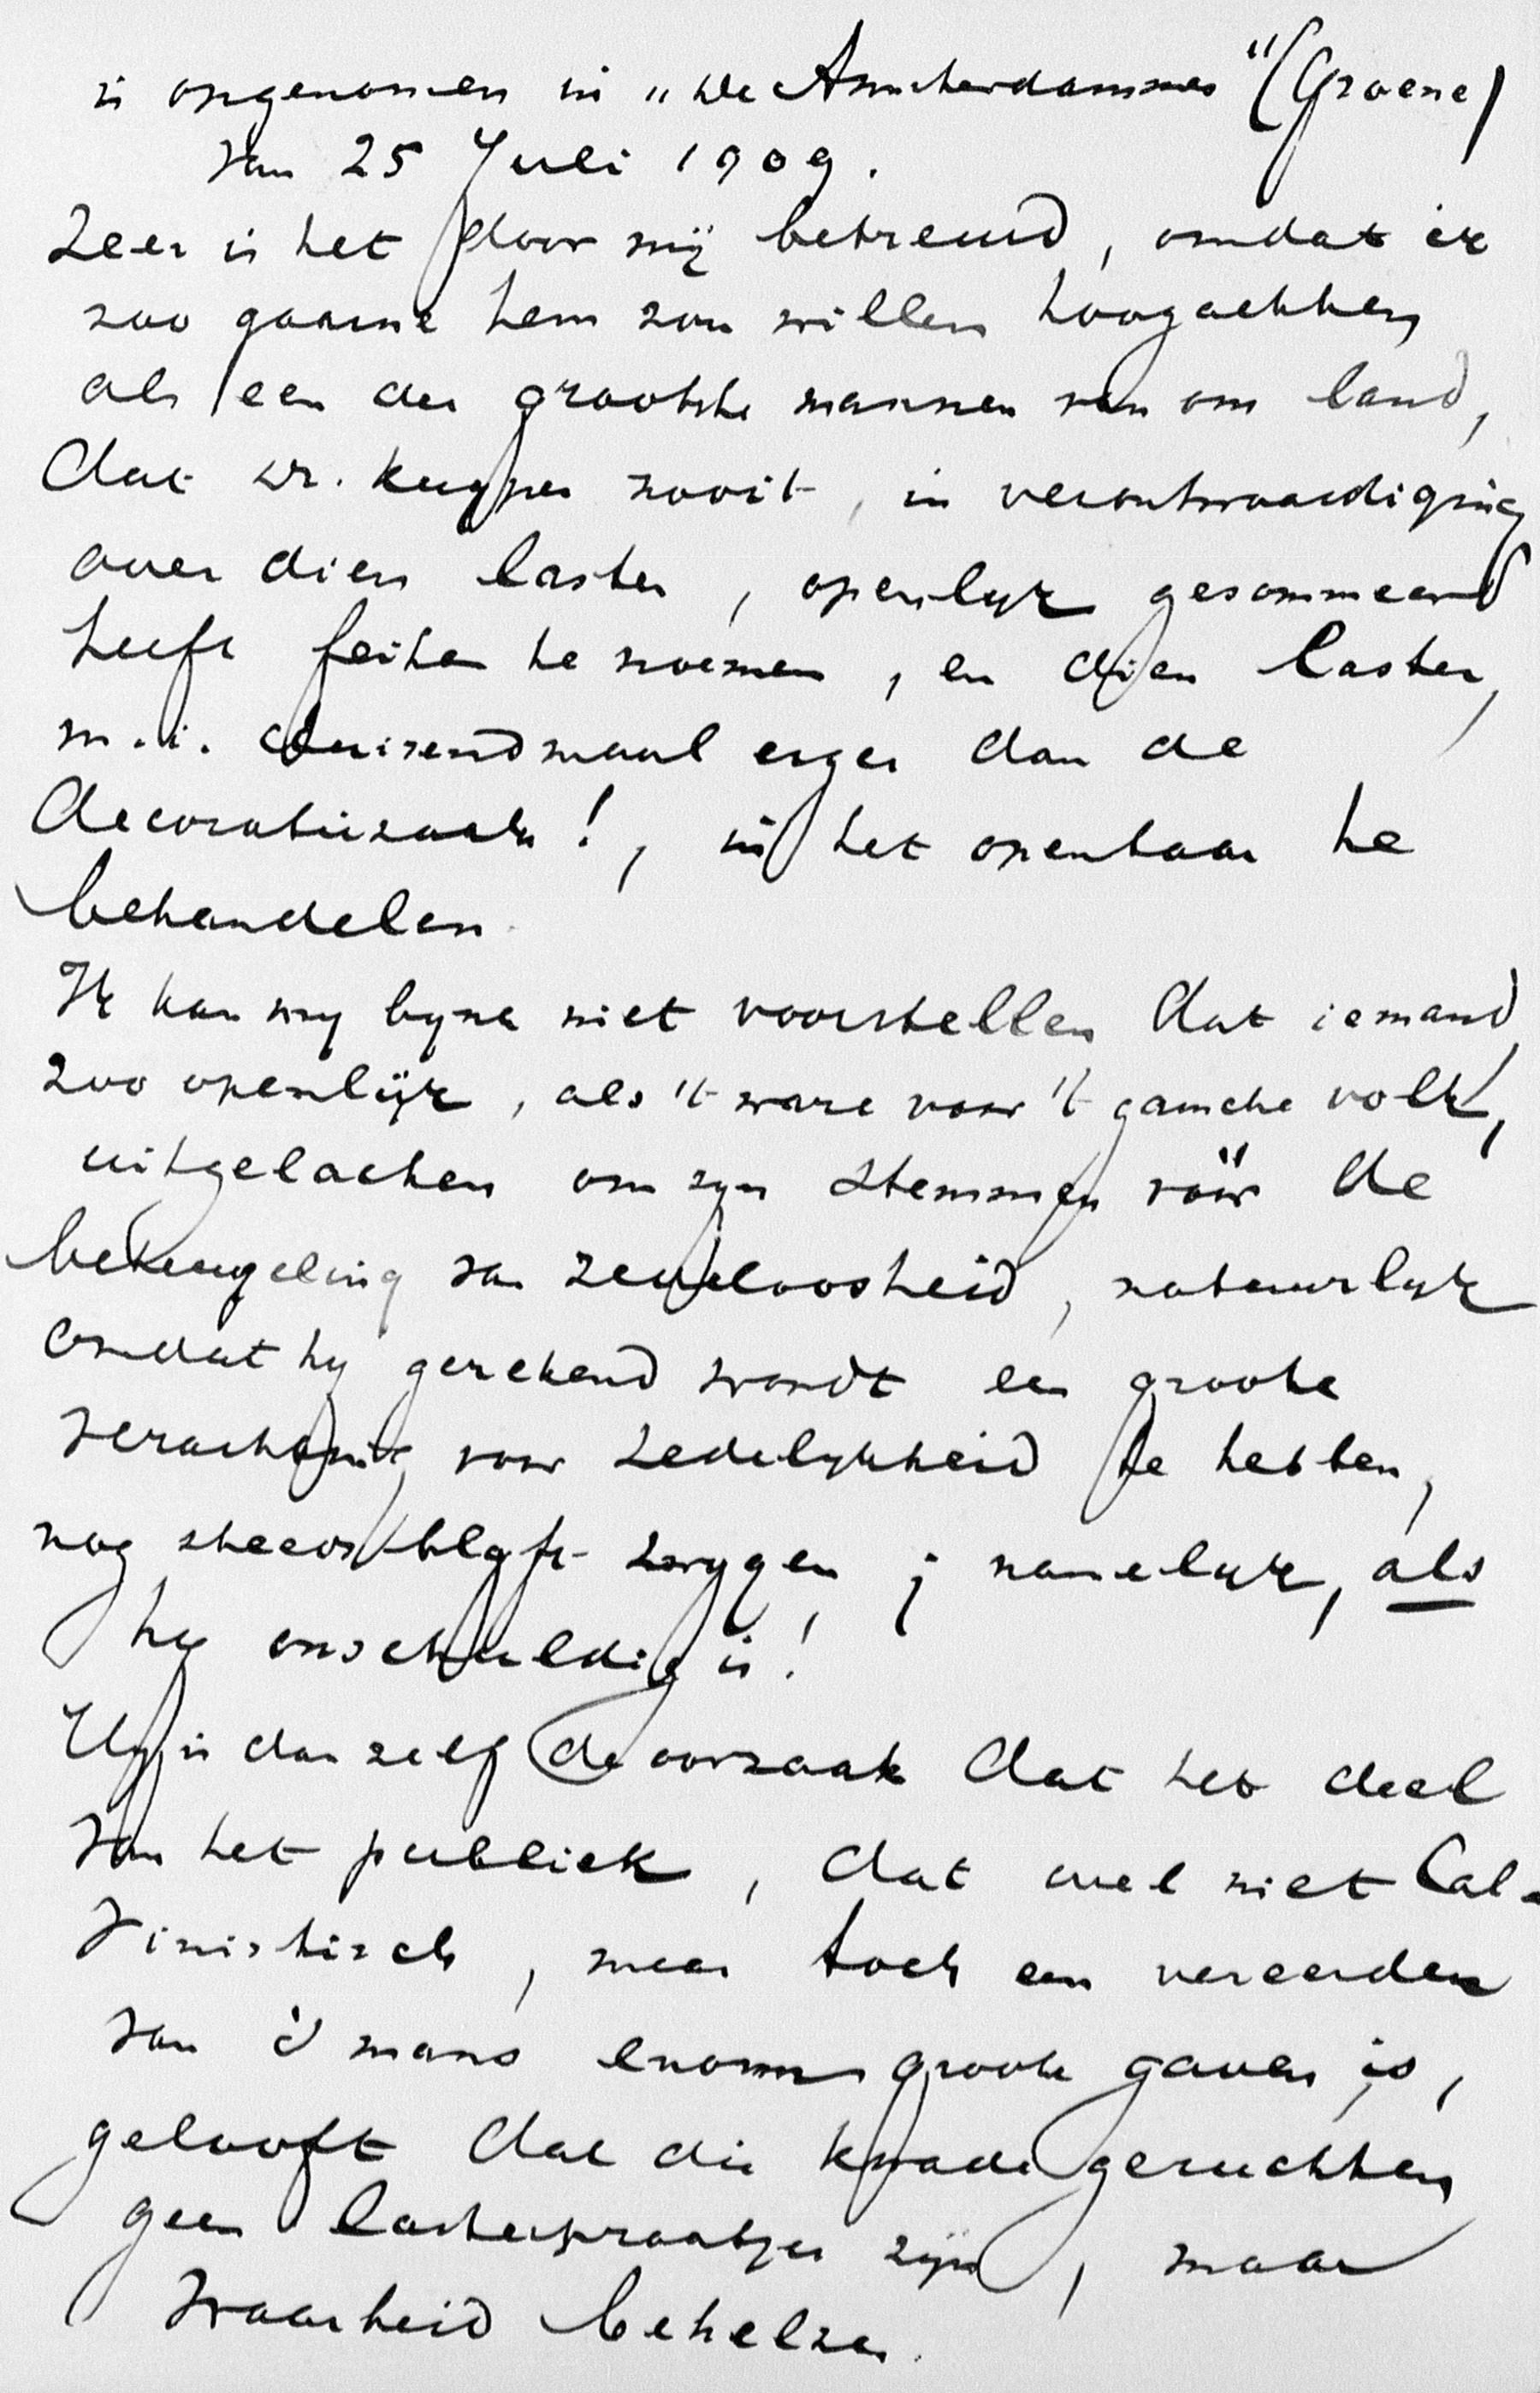 is opgenomen in „De Amsterdammer" (Groene)
van 25 Juli 1909.
Zeer is het door mij betreurd, omdat ik
zoo gaarne hem zou willen hoogachten
als een der grootste mannen van ons land,
dat Dr. Kuyper nooit, in verontwaardiging
over dien laster, openlyk gesommeerd
heeft feiten te noemen, en dien laster,
m.i. duizendmaal erger dan de
decoratiezaak!, in het openbaar te
behandelen.
Ik kan my byna niet voorstellen dat iemand
zoo openlijk, als 't ware voor 't gansche volk,
uitgelachen om zyn stemmen vóór de
beteugeling van zedeloosheid, natuurlyk
omdat hy gerekend wordt een groote
verachting voor zedelykheid te hebben,
nog steeds blyft zwygen; namelyk, als
hy onschuldig is!
Hy is dan zelf de oorzaak dat het deel
van het publiek, dat wel niet Cal-
vinistisch, maar toch een vereerder
van 's mans enorm groote gaven is,
gelooft dat die kwade geruchten
geen lasterpraatjes zijn, maar
waarheid behelzen.